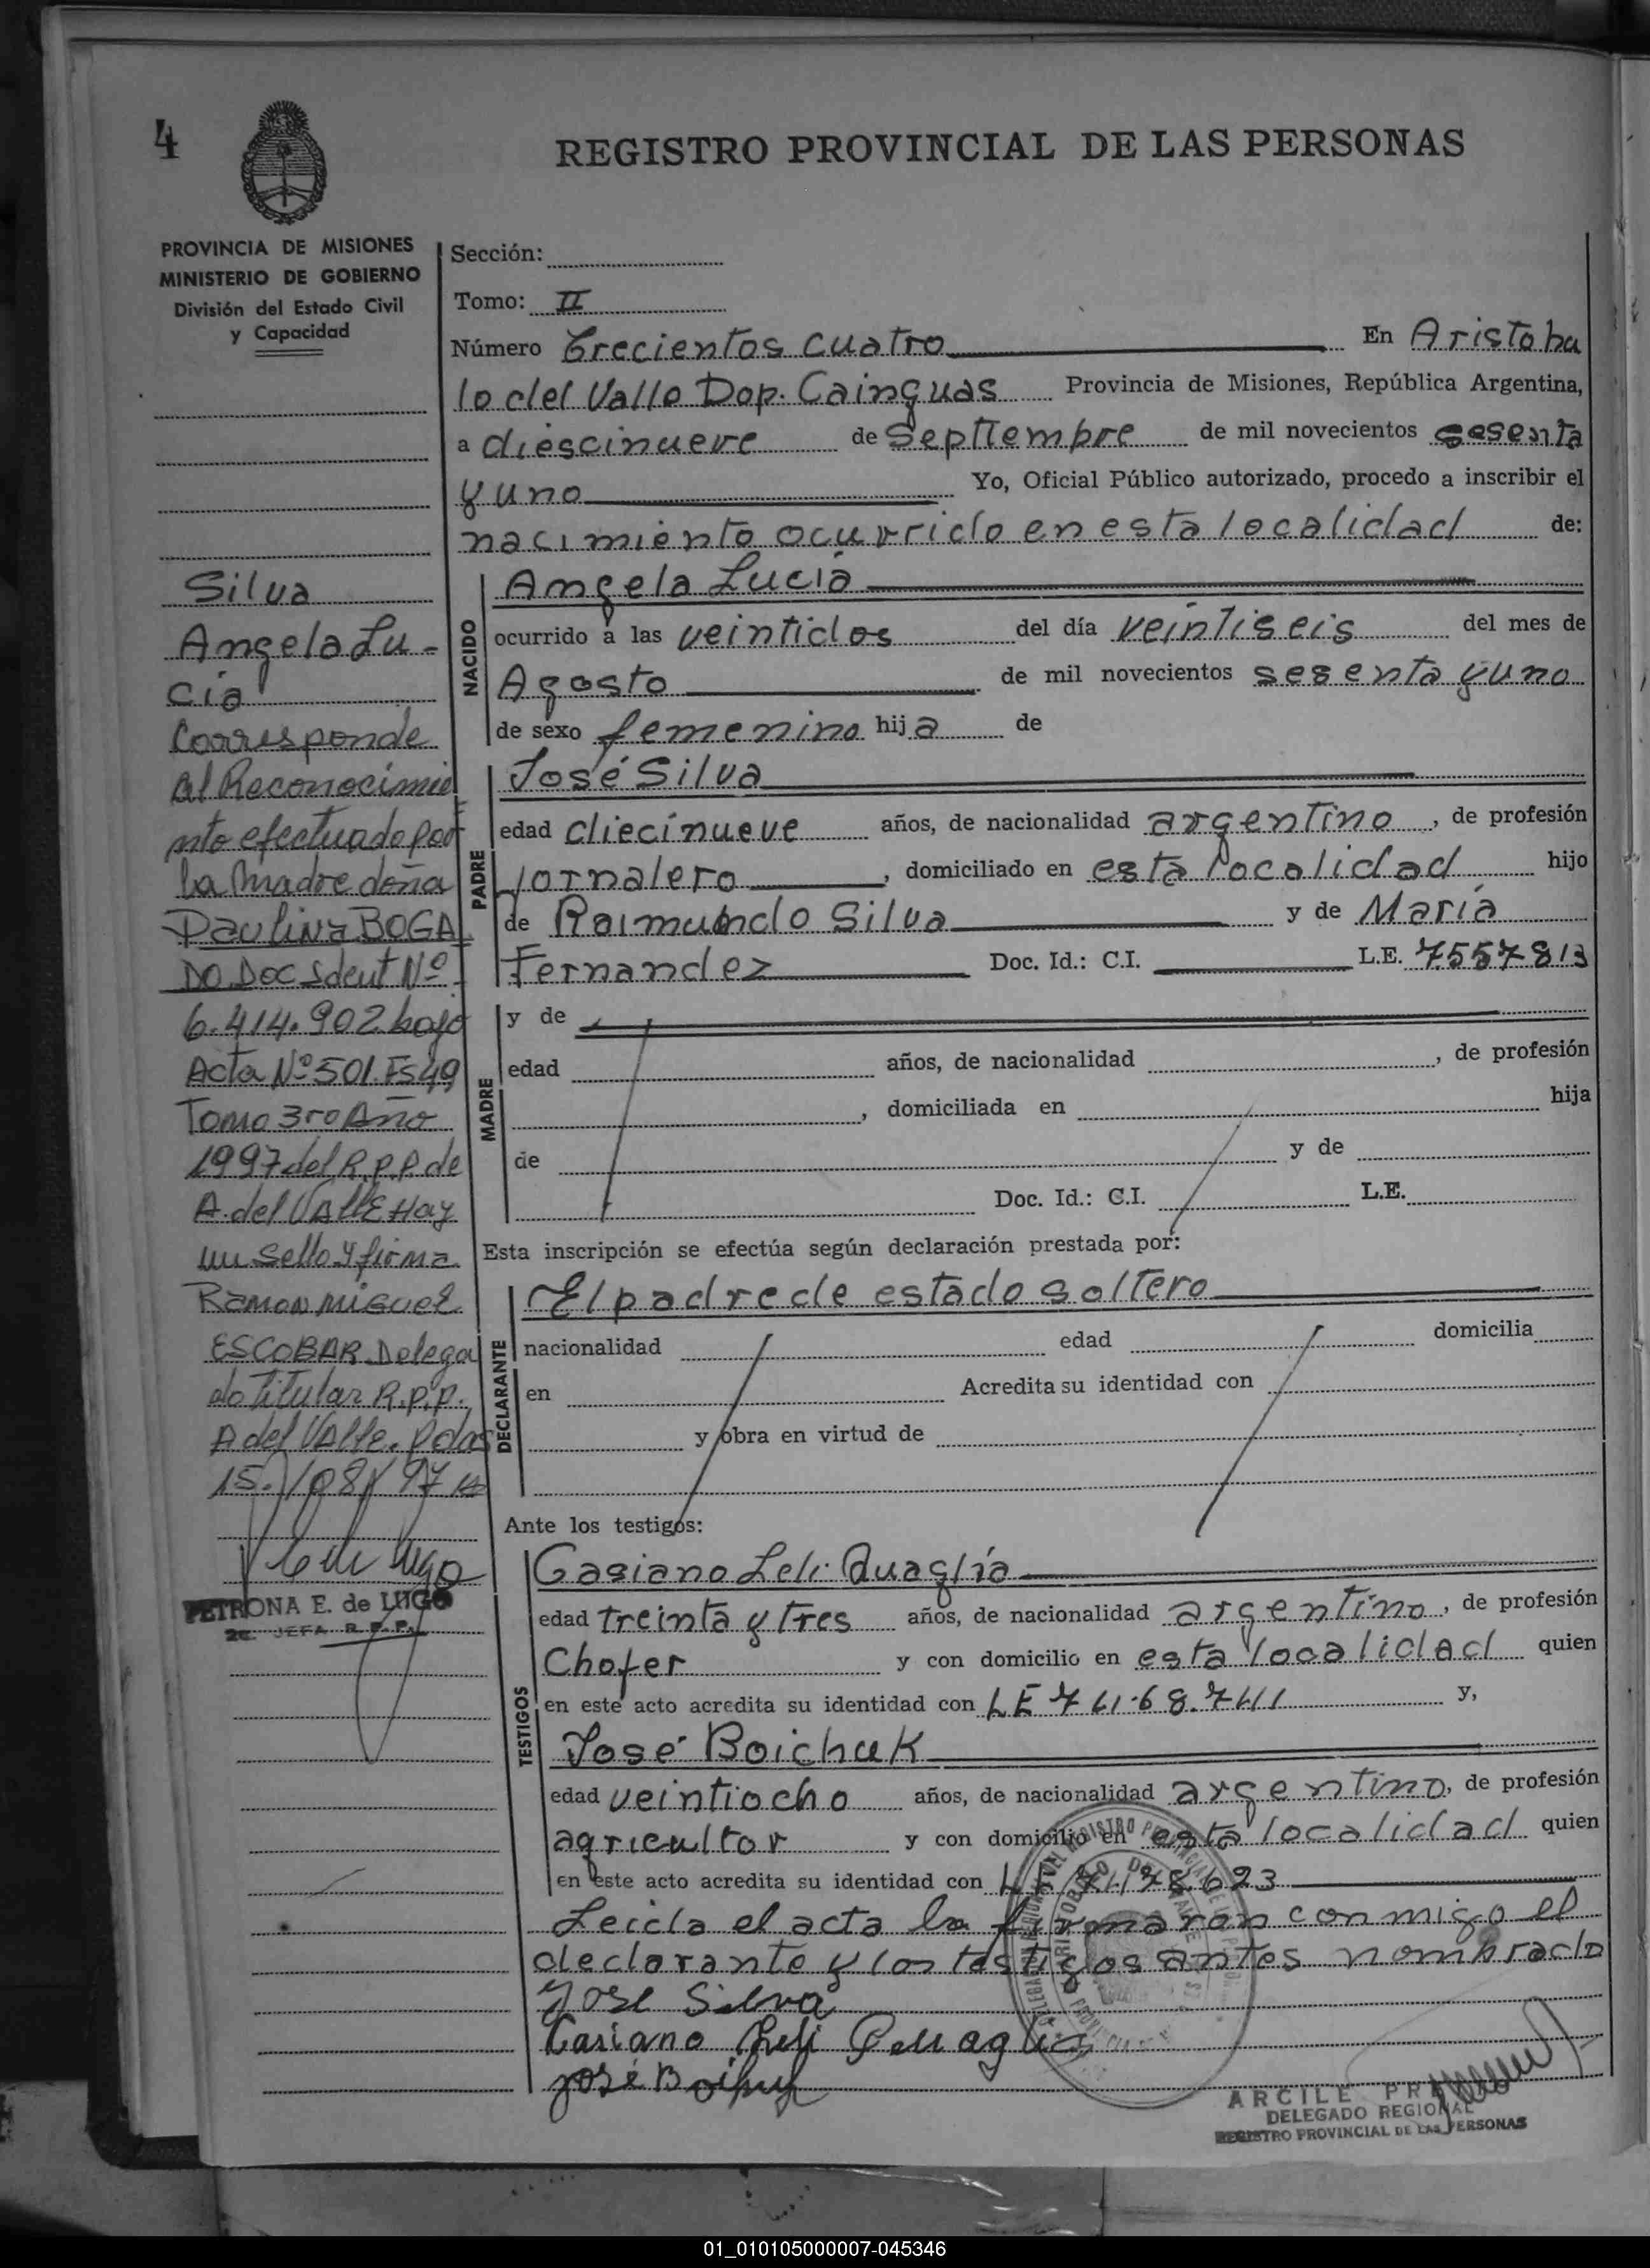 4
REGISTRO PROVINCIAL DE LAS PERSONAS
PROVINCIA DE MISIONES
MINISTERIO DE GOBIERNO
División del Estado Civil
y Capacidad
Sección:
Tomo: II
Número Trecientos cuatro En Aristobu
lo del Valle Dep. Cainguas Provincia de Misiones, República Argentina,
a diescinueve de Septiembre de mil novecientos sesenta
y uno Yo, Oficial Público autorizado, procedo a inscribir el
nacimiento ocurrido en esta localidad de:
NACIDO
Angela Lucia
ocurrido a las veintidos del día veintiseis del mes de
Agosto de mil novecientos sesenta y uno
de sexo femenino hija de
PADRE
José Silva
edad diecinueve años, de nacionalidad argentino, de profesión
Jornalero, domiciliado en esta localidad hijo
de Raimundo Silva y de María
Fernandez Doc. Id.: C.I. L.E. 7557813
MADRE
y de
edad años, de nacionalidad , de profesión
, domiciliada en hija
de y de
Doc. Id.: C.I. L.E.
Esta inscripción se efectúa según declaración prestada por:
DECLARANTE
El padre de estado soltero
nacionalidad edad domicilia
en Acredita su identidad con
y obra en virtud de
Ante los testigos:
TESTIGOS
Casiano Leli Quaglia
edad treinta y tres años, de nacionalidad argentino, de profesión
Chofer y con domicilio en esta localidad quien
en este acto acredita su identidad con LE y,
José Boichuk
edad veintiocho años, de nacionalidad argentino, de profesión
agricultor y con domicilio en esta localidad quien
en este acto acredita su identidad con
Leida el acta la firmaran conmigo el
declarante y los testigos antes nombrado
Jose Silva
Casiano Leli Quaglia
José
ARCILE
DELEGADO REGIONAL
REGISTRO PROVINCIAL DE LAS PERSONAS
Silva
Angela Lu-
cia
Corresponde
al Reconocimie
nto efectuado por
la madre doña
Paulina BOGA
DO Doc Ident Nº
6.414.902 bajo
Acta Nº 501. Fs 49
Tomo 3ro Año
1997 del R.P.P. de
A. del VALLE Hay
un sello y firma
Ramon Miguel
ESCOBAR Delega
do Titular R.P.P.
A del Valle. Pdas
15/08/97
PETRONA E. de LUGO
JEFA R.P.P.
01_010105000007-045346